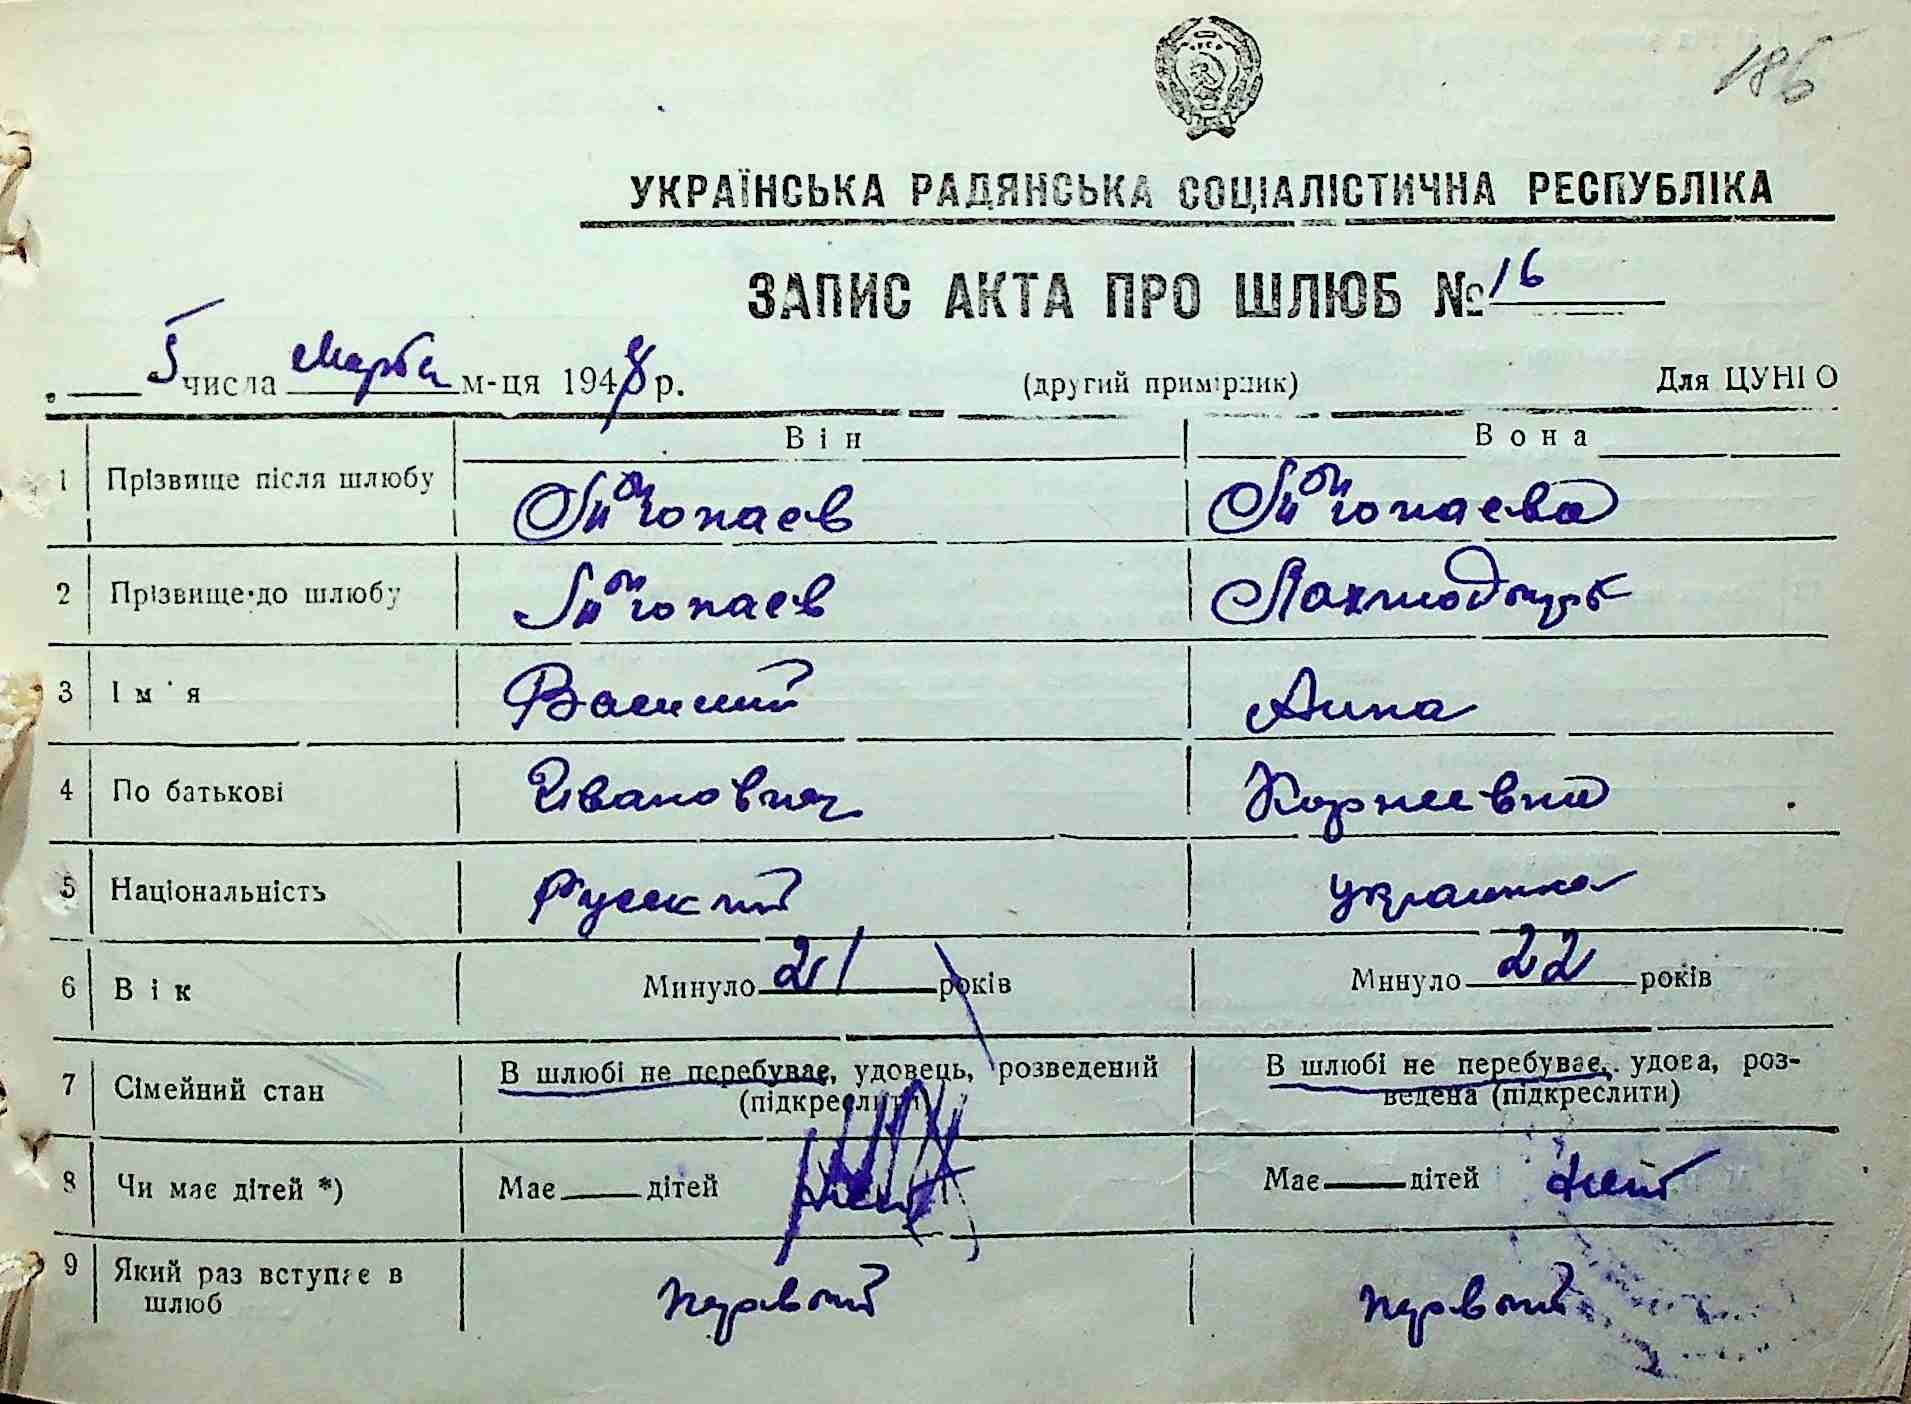 186
УКРАЇНСЬКА РАДЯНСЬКА СОЦІАЛІСТИЧНА РЕСПУБЛІКА
ЗАПИС АКТА ПРО ШЛЮБ № 16
5 числа марта м-ця 1948 р. (другий примірник) Для ЦУНІО
Він Вона
1 Прізвище після шлюбу
2 Прізвище до шлюбу
3 Ім'я Василий Анна
4 По батькові Иванович Корнеевна
5 Національність Русский украинка
6 Вік Минуло 21 років Минуло 22 років
7 Сімейний стан В шлюбі не перебуває, удовець, розведений В шлюбі не перебуває, удова, роз-
(підкреслити) ведена (підкреслити)
8 Чи має дітей *) Має дітей Має дітей нет
9 Який раз вступає в
шлюб первый первый